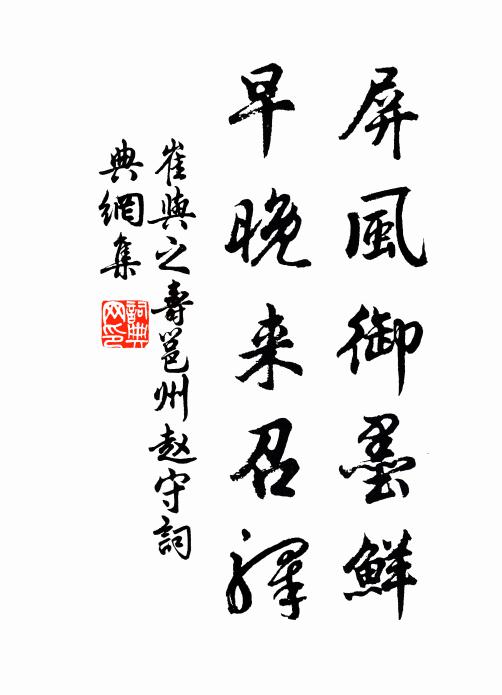 屏風御墨鮮
早晚来召驛
崔與之壽邕州赵守詞
典網集
詞典
网印